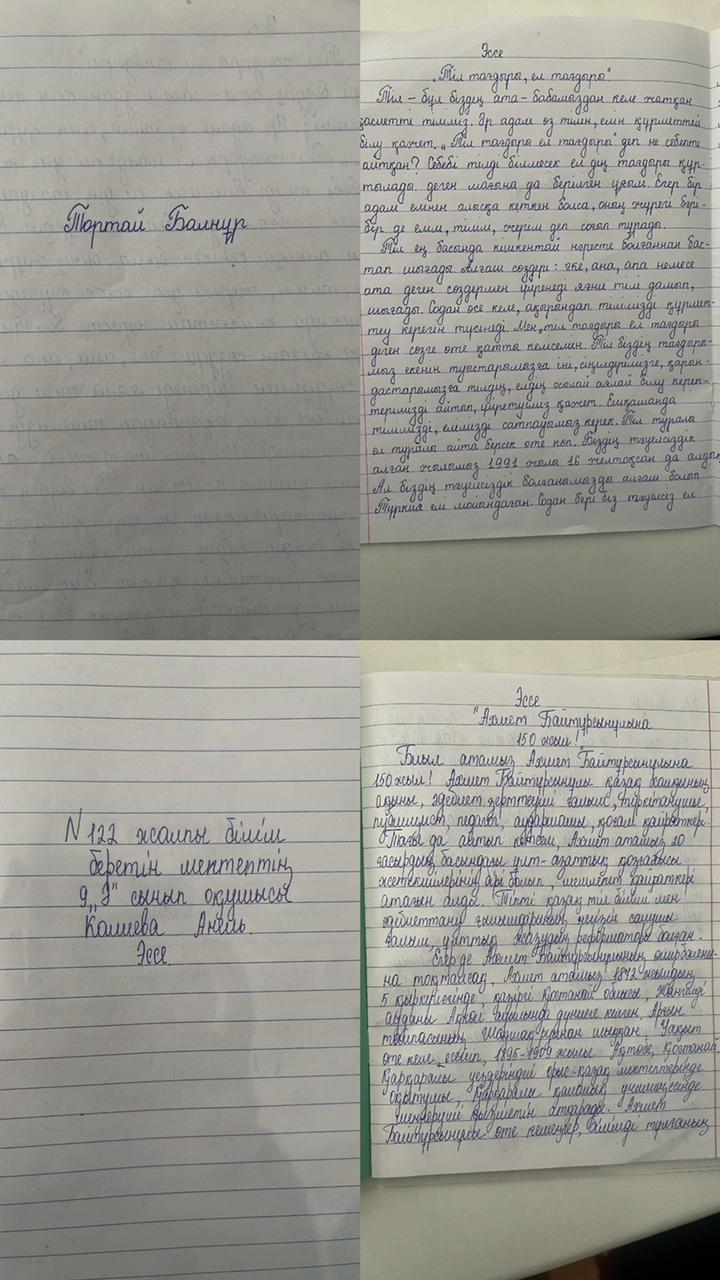 Тортай Балнұр
Эссе
„Тіл тағдыры, ел тағдыры"
Тіл – бұл біздің ата-бабамыздан келе жатқан
қасиетті тіліміз. Әр адам өз тілін, елін құрметтей
білу қажет. „Тіл тағдыры ел тағдыры" деп не себепті
айтқан? Себебі тілді білмесек ел дің тағдыры құр-
талады. деген мағына да берілген ұғым. Егер бір
адам елінен алысқа кеткен болса, оның жүрегі бәрі-
бір де елім, тілім, жерім деп соғып тұрады.
Тіл ең басында кішкентай нәресте болғаннан бас-
тап шығады. Алғаш сөздері: әке, ана, апа немесе
ата деген сөздермен үйренеді яғни тілі дамып,
шығады. Содан өсе келе, ақырындап тілімізді құрмет-
теу керегін түсінеді. Мен „тіл тағдыры ел тағдыры
деген сөзге өте қатты келісемін. Тіл біздің тағдыры-
мыз екенін туыстарымызға іні, сіңілдерімізге, қарын-
дастарымызға тілдің, елдің жолай аялай білу керек-
терімізді айтып, үйретуіміз қажет. Ешқашанда
тілімізді, елімізді сатпауымыз керек. Тіл туралы
ел туралы айта берсек өте көп. Біздің тәуелсіздік
алған жылымыз 1991 жылы 16 желтоқсан да алдық
Ал біздің тәуелсіздік болғанымызды алғаш болып
Түркия елі мойындаған. Содан бері біз тәуелсіз ел
N 122 жалпы білім
беретін мектептің
9 „Ә" сынып оқушысы
Калиева Анель.
Эссе.
Эссе
"Ахмет Байтұрсынұлына
150 жыл!"
Биыл атамыз Ахмет Байтұрсынұлына
150 жыл! Ахмет Байтұрсынұлы қазақ халқының
ақыны, әдебиет зерттеуші ғалым, түркітанушы,
публицист, педагог, аудармашы, қоғам қайраткері.
Тағы да айтып кетсем, Ахмет атамыз 20
ғасырдың басындағы ұлт-азаттық қозғалысы
жетекшілерінің бірі болып, мемлекет қайраткері
атағын алды. Тіпті қазақ тіл білімі мен
әдебиеттану ғылымдарының негізін салушы
ғалым, ұлттық жазудың реформаторы болған.
Егер де Ахмет Байтұрсынұлының өмірбаяны-
на тоқталсақ, Ахмет атамыз 1872 жылдың
5 қыркүйегінде, қазіргі Қостанай облысы, Жангелді
ауданы Ақкөл ауылында дүниеге келген, Арғын
тайпасының Шақшақ руынан шыққан. Уақыт
өте келе, есейіп, 1895-1909 жылы Ақтөбе, Қостанай,
Қарқаралы уездеріндегі орыс-қазақ мектептерінде
оқытушы, Қарқаралы қалалық училищесінде
меңгеруші қызметін атқарады. Ахмет
Байтұрсынұлы өте кемеңгер, білімді тұлғаның